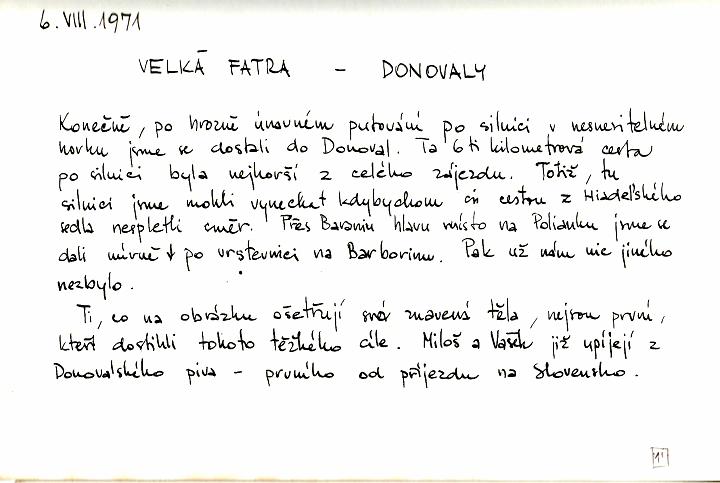 6. VIII. 1971
VELKÁ FATRA - DONOVALY
Konečně, po hrozně únavném putování po silnici v nesnesitelném
horku jsme se dostali do Donoval. Ta 6ti kilometrová cesta
po silnici byla nejhorší z celého zájezdu. Totiž, tu
silnici jsme mohli vynechat kdybychom cestou z Hiadeľského
sedla nespletli směr. Přes Baraniu hlavu místo na Polianku jsme se
dali mírně ↓ po vrstevnici na Barborinu. Pak už nám nic jiného
nezbylo.
Ti, co na obrázku ošetřují svá znavená těla, nejsou první,
kteří dostihli tohoto těžkého cíle. Miloš a Vašek již upíjejí z
Donovalského piva - prvního od příjezdu na Slovensko.
11